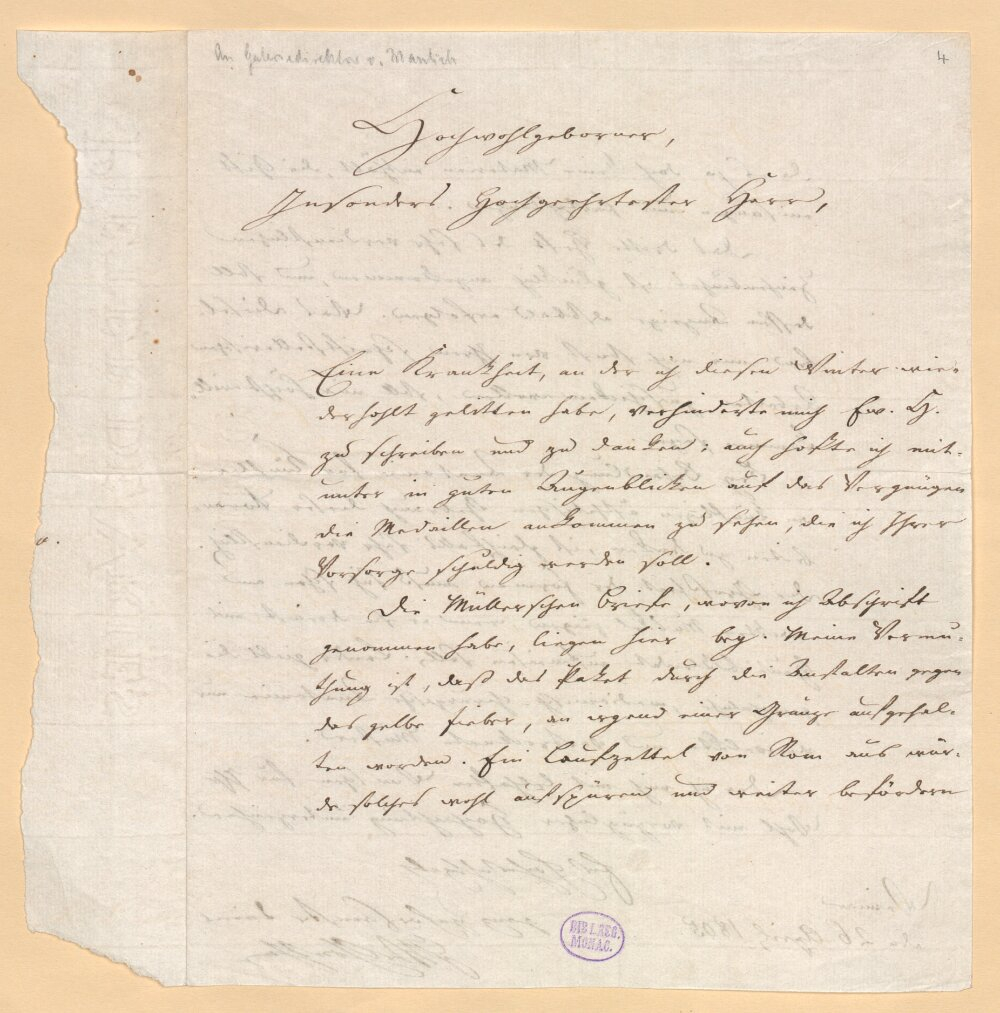 An Galeriedirektor v. Mannlich
4
Hochwohlgeborner,
Insonders Hochgeehrtester Herr,
Eine Krankheit, an der ich diesen Winter wie-
derhohlt gelitten habe, verhinderte mich Ew. H.
zu schreiben und zu danken; auch hofte ich mit-
unter in guten Augenblicken auf das Vergnügen
die Medaillen ankommen zu sehen, die ich Ihrer
Vorsorge schuldig werden soll.
Die Müllerschen Briefe, wovon ich Abschrift
genommen habe, liegen hier bey. Meine Vermu-
thung ist, daß das Paket durch die Anstalten gegen
das gelbe Fieber, an irgend einer Gränze aufgehal-
ten worden. Ein Laufzettel von Rom aus wür-
de solches wohl aufspüren und weiter befördern
BIBL. REG.
MONAC.